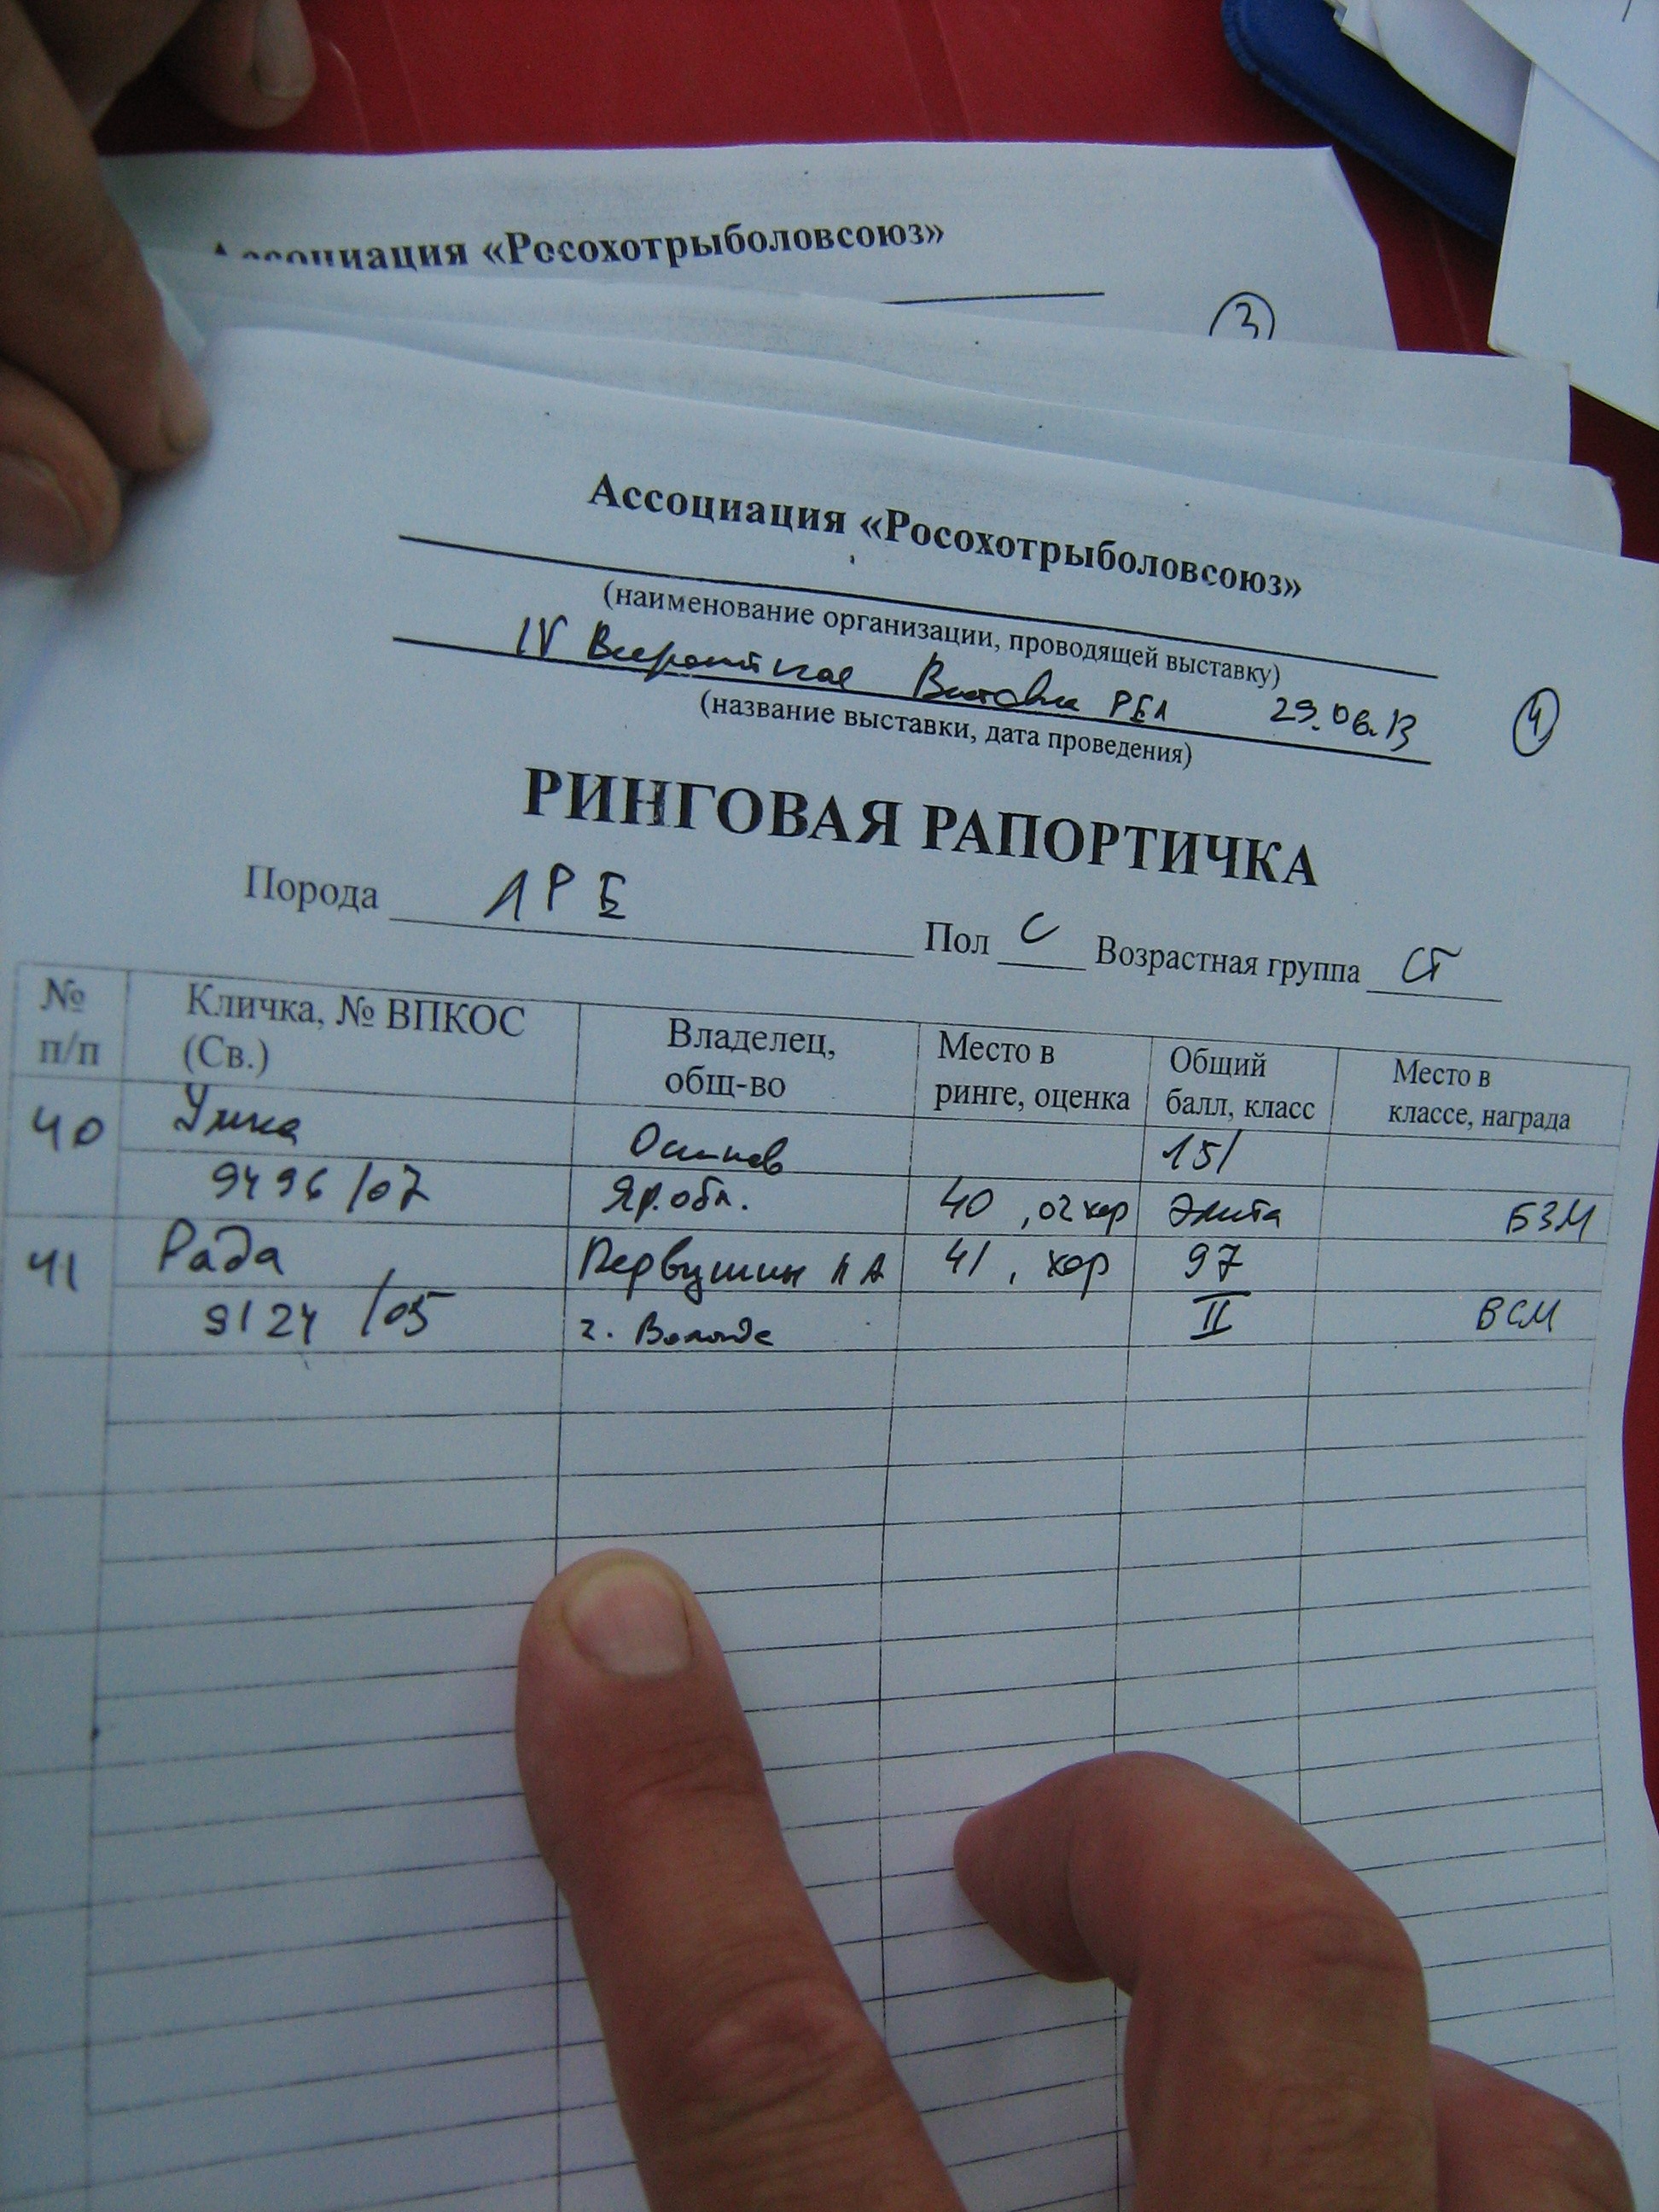 Ассоциация «Росохотрыболовсоюз»
3
Ассоциация «Росохотрыболовсоюз»
(наименование организации, проводящей выставку)
IV Всероссийская Выставка РЕЛ 29.06.13
4
(название выставки, дата проведения)
РИНГОВАЯ РАПОРТИЧКА
Порода ЛРЕ Пол С Возрастная группа СТ
№ п/п Кличка, № ВПКОС (Св.) Владелец, общ-во Место в ринге, оценка Общий балл, класс Место в классе, награда
40 Умка Осипов 151
9496/07 Яр. обл. 40, оч хор Элита БЗМ
41 Рада Первушин 41, хор 97
9124/05 г. Вологда II ВСМ